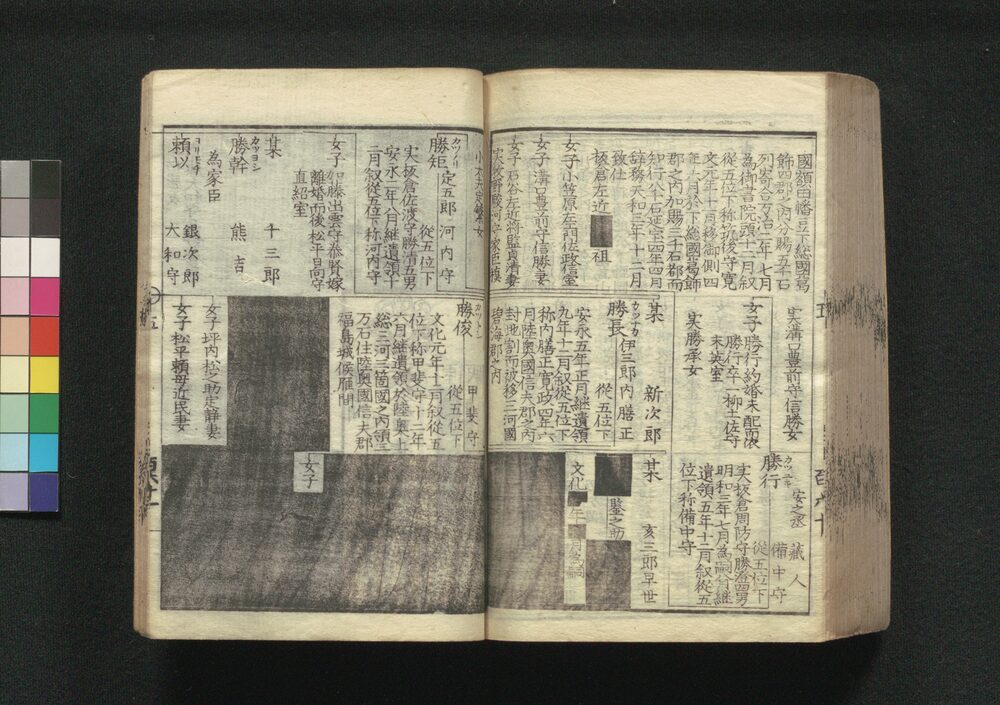 國額田幡豆下総國葛
飾四郡之内分賜五千石
列
為御書院頭十二月叙
從五位下称筑後守寛
文元年十一月移御側四
年六月於下総國葛飾
郡之内加賜三千石都而
知行八千石延宝四年四月
辞務天和三年十二月
致仕
板倉左近
祖
女子小笠原左衛門佐政信室
女子溝口豊前守信勝妻
女子石谷左近将監貞清妻
実溝口豊前守信勝女
女子勝行約婚未配而依
勝行卒一柳土佐守
末英室
実勝承女
某 新次郎
勝長 カツナガ 伊三郎 内膳正
從五位下
安永五年正月継遺領
九年十二月叙從五位下
称内膳正寛政四年六
月陸奥國信夫郡之内
封地割而被移三河國
碧海郡之内
勝行 カツユキ 安之丞 蔵人
備中守
從五位下
実板倉周防守勝澄四男
明和三年七月為嗣今継
遺領五年十二月叙從五
位下称備中守
某 亥三郎早世
鑒之助
文化 年 為嗣
勝矩 カツノリ 定五郎 河内守
從五位下
実板倉佐渡守勝清五男
安永二年八月継遺領十
二月叙從五位下称河内守
女子加藤出雲守泰賢嫁
離婚而後松平日向守
直紹室
某 千三郎
勝幹 カツヨシ 熊吉
為家臣
頼以 ヨリモチ 銀次郎
大和守
勝俊 カツトシ 甲斐守
從五位下
文化元年十二月叙從五
位下称甲斐守十二年
六月継遺領於陸奥上
総三河三箇國之内領三
万石住陸奥國信夫郡
福島城候雁間
女子坪内松之助定静妻
女子松平頼母近民妻
女子